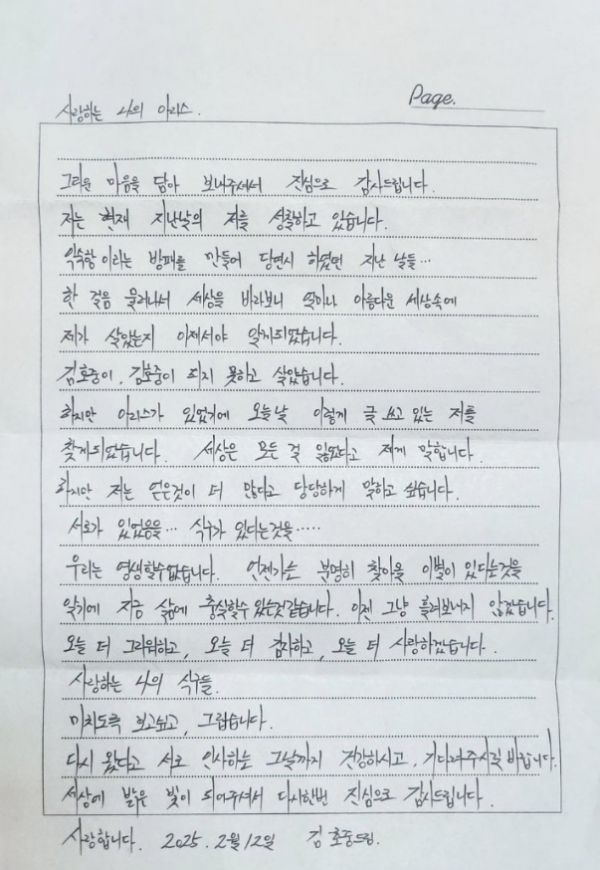 Page.
사랑하는 나의 아리스.
그리운 마음을 담아 보내주셔서 진심으로 감사드립니다.
저는 현재 지난날의 저를 성찰하고 있습니다.
익숙함이라는 방패를 만들어 당연시 하였던 지난 날들...
한 걸음 물러나서 세상을 바라보니 얼마나 아름다운 세상속에
제가 살았는지 이제서야 알게되었습니다.
김호중이, 김호중이 되지 못하고 살았습니다.
하지만 아리스가 있었기에 오늘날 이렇게 글 쓰고 있는 저를
찾게되었습니다. 세상은 모든 걸 잃었다고 저게 말합니다.
하지만 저는 얻은것이 더 많다고 당당하게 말하고 싶습니다.
서로가 있었음을... 식구가 있다는것을.....
우리는 영생할수없습니다. 언젠가는 분명히 찾아올 이별이 있다는것을
알기에 지금 삶에 충실할수 있는것같습니다. 이젠 그냥 흘려보내지 않겠습니다.
오늘 더 그리워하고, 오늘 더 감사하고, 오늘 더 사랑하겠습니다.
사랑하는 나의 식구들.
미치도록 보고싶고, 그립습니다.
다시 왔다고 서로 인사하는 그날까지 건강하시고, 기다려주시길 바랍니다.
세상에 밝은 빛이 되어주셔서 다시한번 진심으로 감사드립니다.
사랑합니다. 2025. 2월 12일 김호중드림.